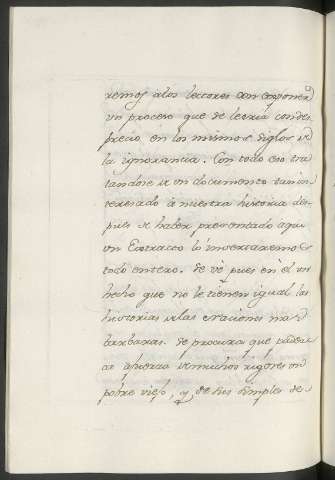 remos a los lectores con exponer
un proceso que se leeria con des
precio en los mismos siglos de
la ignorancia. Con todo eso tra
tandose de un documento tan in
teresado à nuestra historia des
pues de haber presentado aqui
un Extracto lo insertaremos
todo entero. Se vè pues en èl un
hecho que no le tienen igual las
historias de las naciones mas
barbaras. Se procura que
a fuerza de muchos rigores un
pobre viejo, y de sus simples de